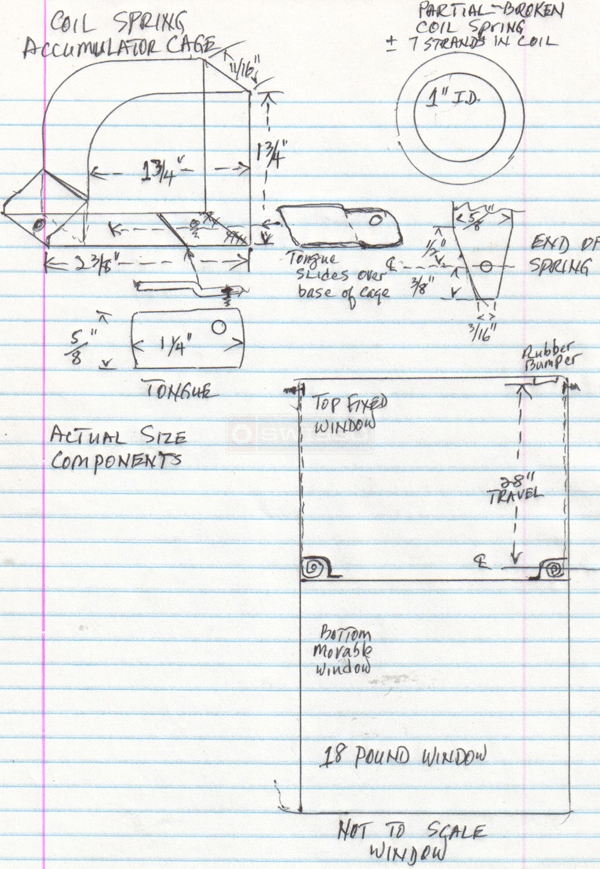 COIL SPRING
ACCUMULATOR CAGE
PARTIAL-BROKEN
COIL SPRING
± 7 STRANDS IN COIL
11/16"
1" I.D.
1 3/4"
1 3/4"
2 3/8"
Tongue
SLIDES OVER
base of cage
5/8"
1/2"
℄
3/8"
3/16"
END OF
SPRING
5/8"
1 1/4"
TONGUE
ACTUAL SIZE
COMPONENTS
Rubber
Bumper
TOP FIXED
WINDOW
28"
TRAVEL
℄
Bottom
Movable
Window
18 POUND WINDOW
NOT TO SCALE
WINDOW